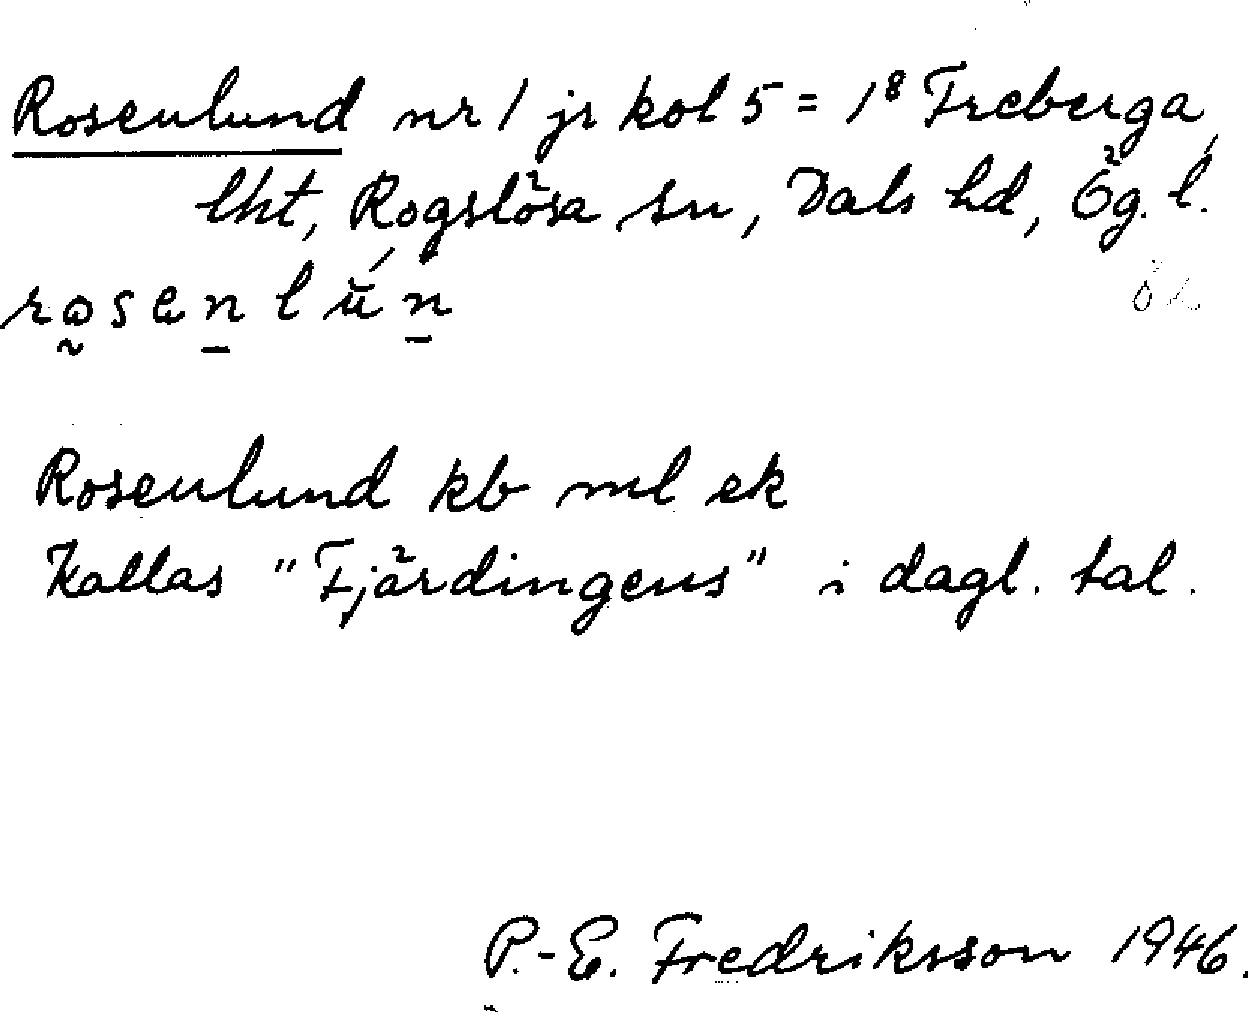 Rosenlund nr 1 jr kol 5 = 1⁸ Freberga,
lht, Rogslösa sn, Dals hd, Ög. l.
rosenlún
Rosenlund kb ml ek
Kallas "Fjärdingens" i dagl. tal.
P.-E. Fredriksson 1946.